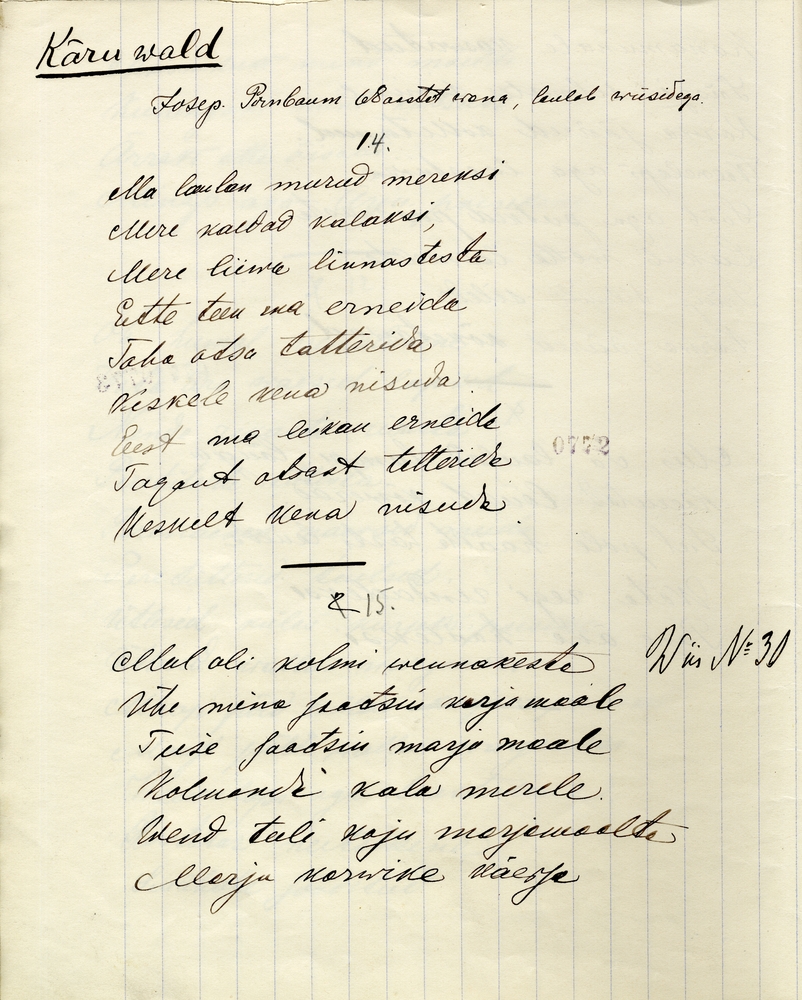 Käru wald
Josep. Pornbaum 68 aastat wana, laulab wiisidega.
14.
Ma laulan murud mereksi
Mere kaldad kalaksi,
Mere liiwa linnastesta
Ette teen ma erneida
Taha otsa tatterida
Keskele kena nisuda
Eest ma leikan erneida
Tagant otsast tatterida
Keskelt kena nisuda
0772
15.
Mul oli kolmi wennakesta
Wiis № 30
Ühe mina saatsin karja maale
Teise saatsin marja maale
Kolmandi kala merele.
Wend tuli koju marjamaalta
Marja korwike käessa